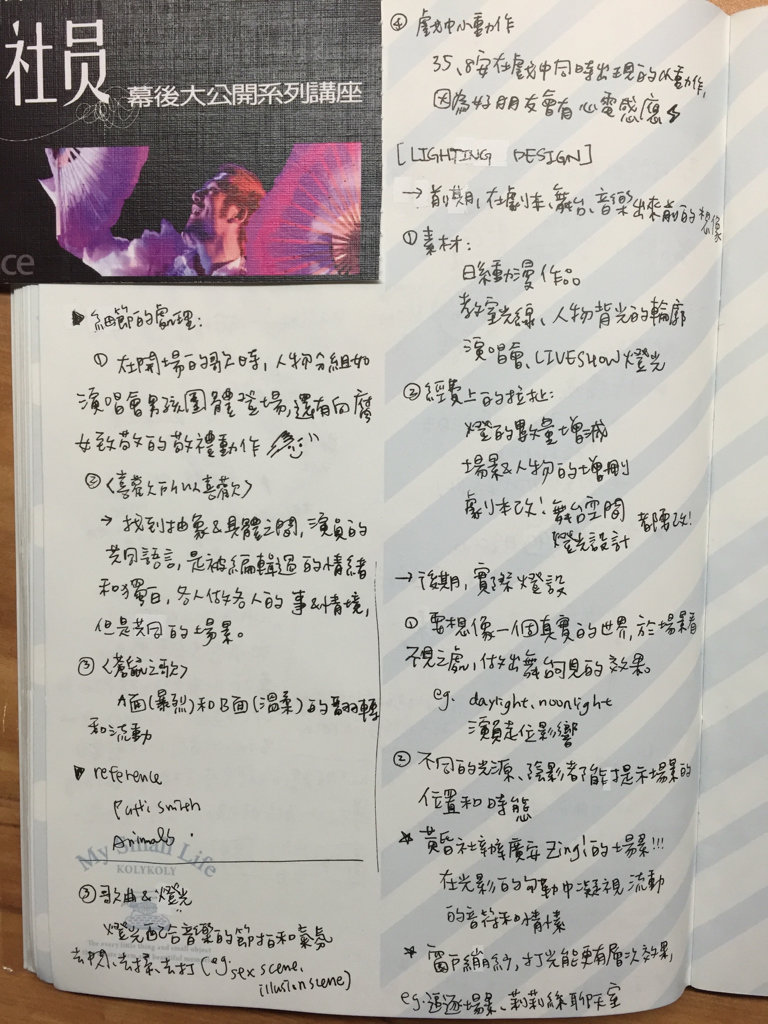 社员
幕後大公開系列講座
ce
▶ 細節的處理：
① 在開場的歌時，人物分組如
演唱會男孩團體登場，還有向腐
女致敬的敬禮動作
② 〈喜歡所以喜歡〉
→ 找到抽象&具體之間，演員的
共同語言，是被編輯過的情緒
和獨白，各人做各人的事&情境，
但是共同的場景。
③ 〈蒼航之歌〉
A面(暴烈)和B面(溫柔)的翻轉
和流動
▶ reference
Patti Smith
Animals
My Small Life
KOLYKOLY
③ 歌曲&燈光
燈光配合音樂的節拍和氣氛
去閃、去掃、去打 (eg. sex scene,
illusion scene)
④ 戲中小動作
35、8安在戲中同時出現的小動作，
因為好朋友會有心電感應
[LIGHTING DESIGN]
→ 前期，在劇本、舞台、音樂出來前的想像
① 素材：
日系動漫作品
教室光線、人物背光的輪廓
演唱會、LIVESHOW燈光
② 經費上的拉扯：
燈的數量增減
場景&人物的增刪
劇本改！舞台空間
燈光設計 都要改！
→ 後期，實際燈設
① 要想像一個真實的世界，於場景看
不見之處，做出舞台可見的效果。
eg. daylight、moonlight
演員走位影響
② 不同的光源、陰影都能提示場景的
位置和時態
★ 黃昏社辦廣安Zing!的場景!!!
在光影的勾勒中凝視流動
的音符和情愫
★ 窗戶綃紗，打光能更有層次效果，
eg. 追逐場景、莉莉絲聊天室